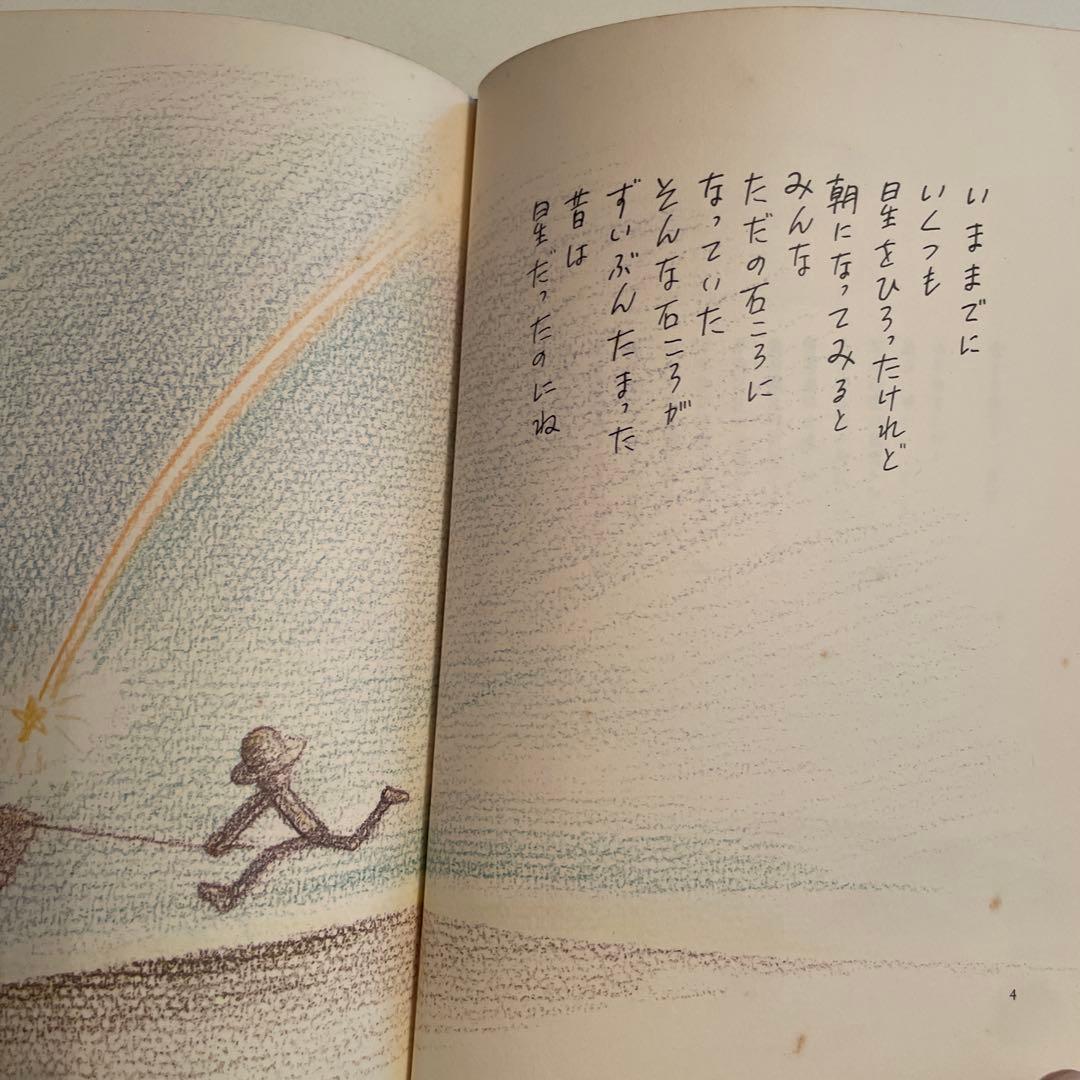 いままでに
いくつも
星をひろったけれど
朝になってみると
みんな
ただの石ころに
なっていた
そんな石ころが
ずいぶんたまった
昔は
星だったのにね
4